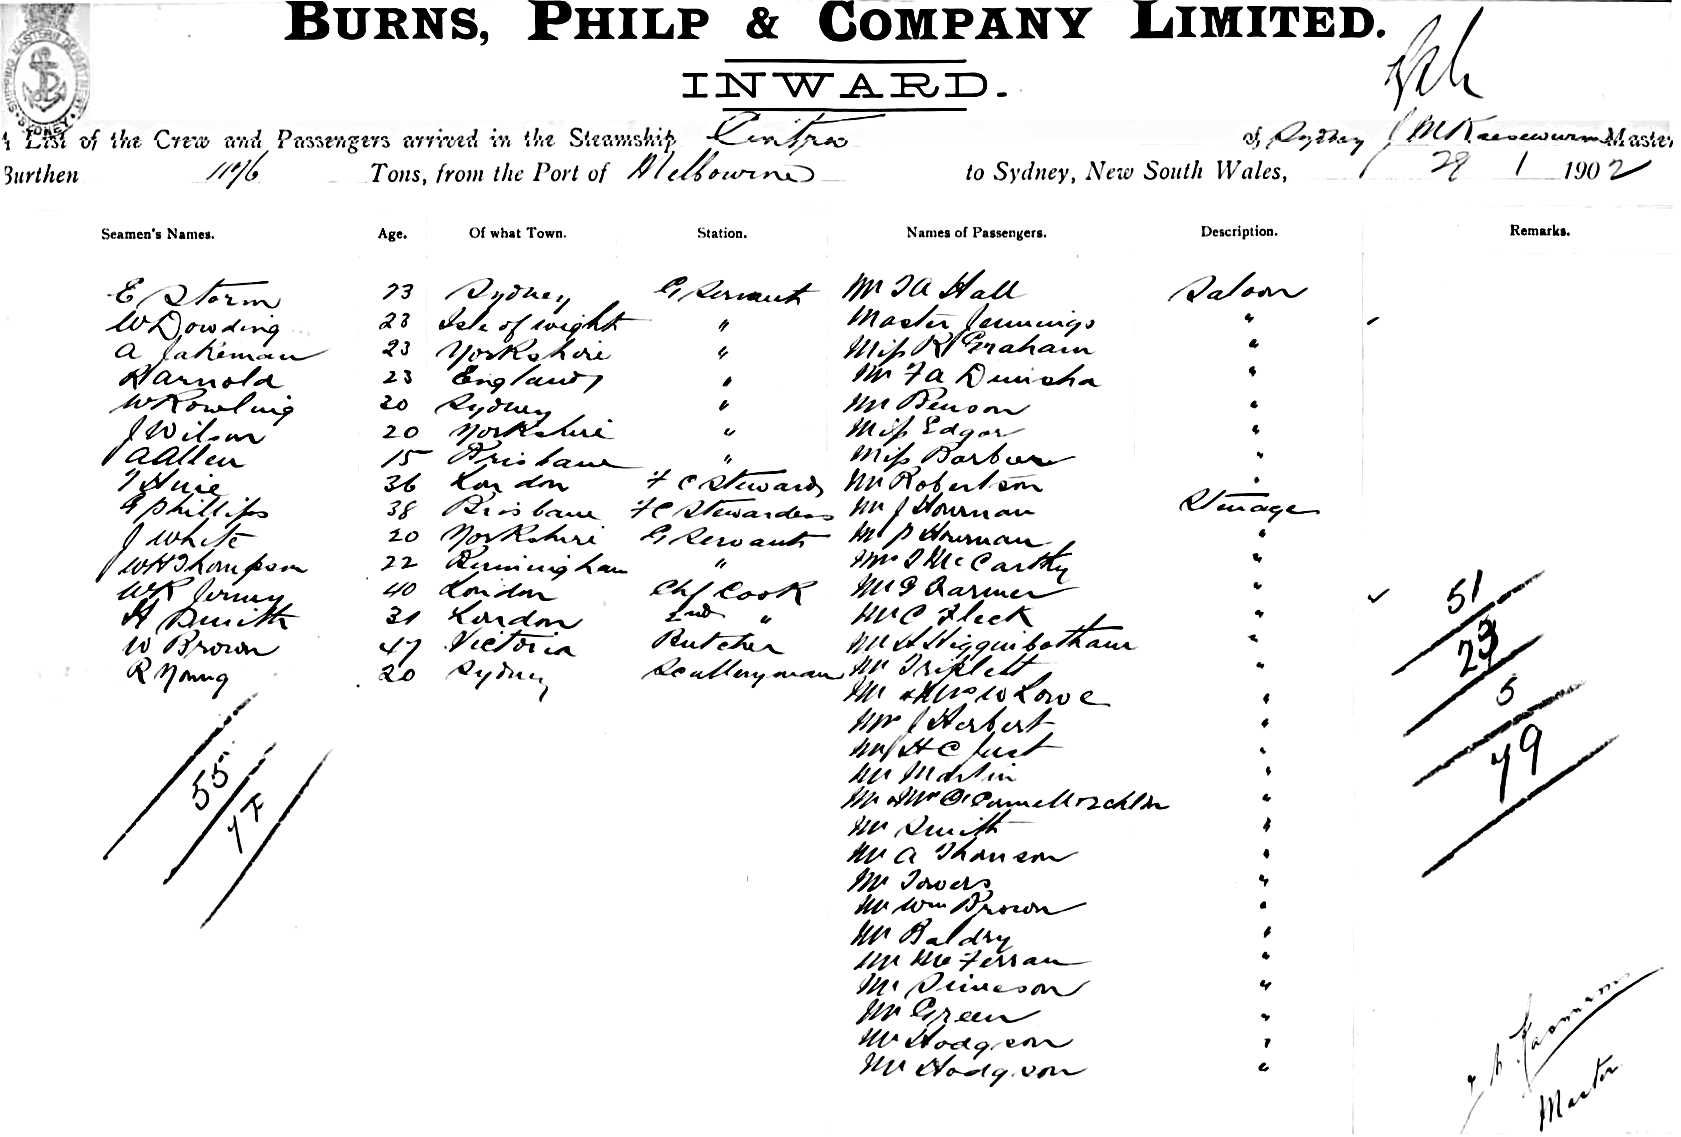 BURNS, PHILP & COMPANY LIMITED.
INWARD.
SHIPPING MASTER'S DEPARTMENT SYDNEY
A List of the Crew and Passengers arrived in the Steamship Cintra of Sydney J Master
Burthen 1176 Tons, from the Port of Melbourne to Sydney, New South Wales, 29 1 1902
Seamen's Names. Age. Of what Town. Station. Names of Passengers. Description. Remarks.
E Storm 23 Sydney G Servant Mr T A Hall Saloon
W Dowding 23 Isle of wight " Master Jennings "
A Jakeman 23 Yorkshire " Miss R Graham "
H Arnold 23 England " Mr F A "
W Rowling 20 Sydney " Mr Benson "
J Wilson 20 Yorkshire " Miss Edgar "
A Allen 15 Brisbane " Miss Barbour "
T Huie 36 London F C Steward Mr Robertson "
E Phillips 38 Brisbane F C Stewardess Mr J Hourman Steerage
J White 20 Yorkshire G Servant Mr P Hourman "
W H Thompson 22 Birmingham " Mr T McCarthy "
W R 40 London Chf Cook Mr G Garmer "
H Smith 31 London 2nd " Mr C Fleck "
W Brown 47 Victoria Butcher Mr A Higginbotham "
R Young 20 Sydney Sculleryman Mr Triplett "
Mr & Mrs W Lowe "
Mr J Herbert "
Mr H C Just "
Mr Martin "
Mr & Mrs "
Mr Smith "
Mr A Thomson "
Mr Towers "
Mr Wm Brown "
Mr Baldry "
Mr McFerran "
Mr Simeson "
Mr Green "
Mr Hodgson "
Mr Hodgson "
55
51
23
5
79
Master